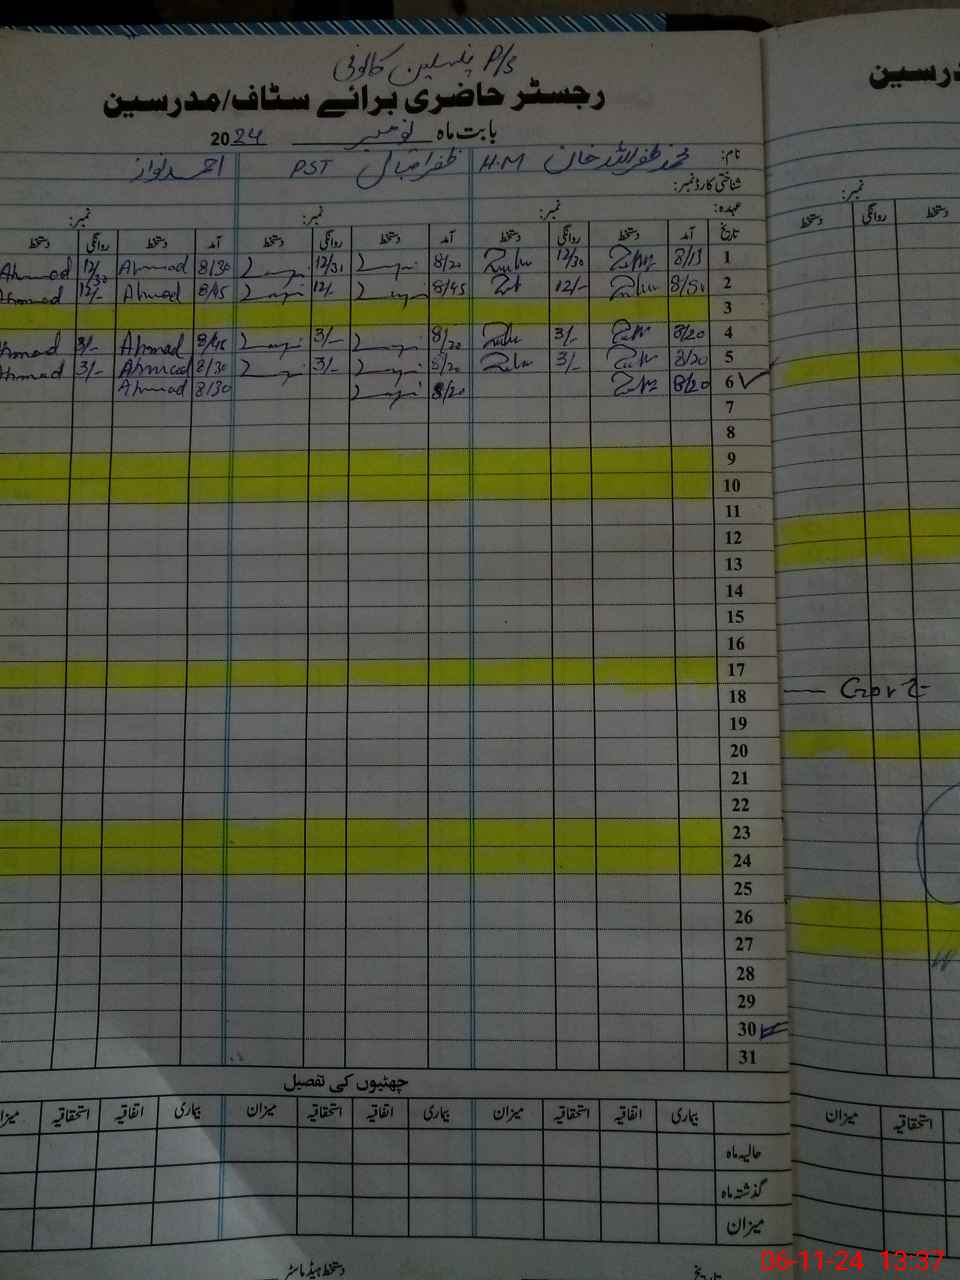 P/S پنسلین کالونی
رجسٹر حاضری برائے سٹاف/مدرسین
بابت ماہ نومبر 2024
نام: محمد ظفر اللہ خان H.M ظفر اقبال PST احمد نواز
شناختی کارڈ نمبر:
عہدہ: نمبر: نمبر: نمبر:
تاریخ آمد دستخط روانگی دستخط آمد دستخط روانگی دستخط آمد دستخط روانگی دستخط
1 8/15 12/30 8/20 12/31 8/30 Ahmad 12/30 Ahmad
2 8/50 12/- 8/45 12/- 8/45 Ahmad 12/- Ahmad
3
4 8/20 3/- 8/20 3/- 8/45 Ahmad 3/- Ahmad
5 8/20 3/- 8/20 3/- 8/30 Ahmad 3/- Ahmad
6 8/20 8/20 8/30 Ahmad
7
8
9
10
11
12
13
14
15
16
17
18
19
20
21
22
23
24
25
26
27
28
29
30
31
چھٹیوں کی تفصیل
بیماری اتفاقیہ استحقاقیہ میزان بیماری اتفاقیہ استحقاقیہ میزان بیماری اتفاقیہ استحقاقیہ میزان
حالیہ ماہ
گذشتہ ماہ
میزان
تاریخ دستخط ہیڈ ماسٹر
درسین
نمبر:
دستخط روانگی دستخط
استحقاقیہ میزان
06-11-24 13:37